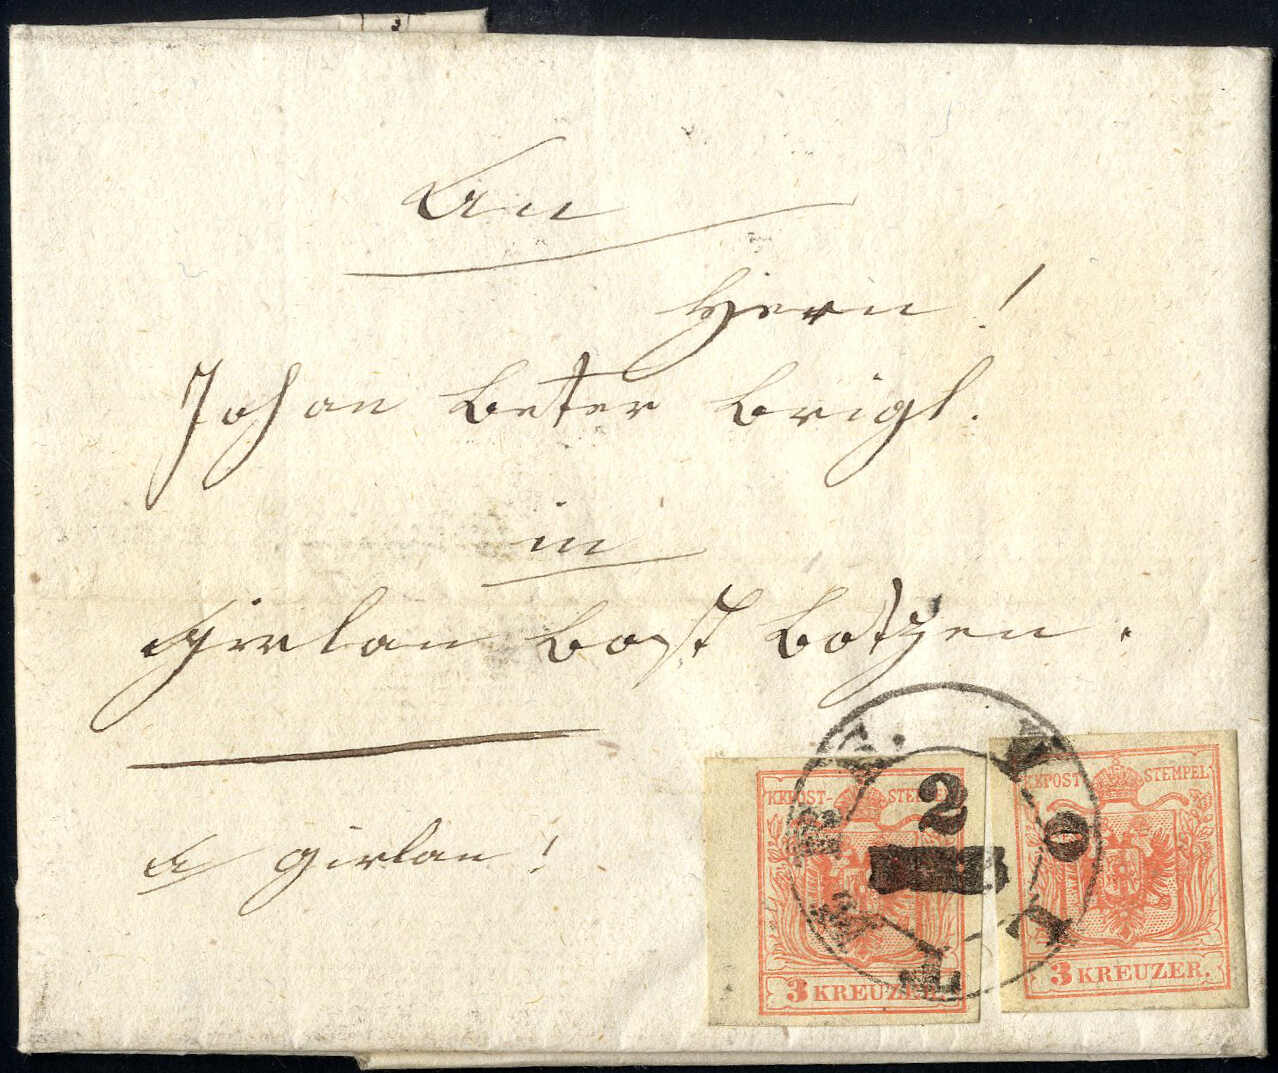 An
Herrn!
Johan Beter Brigl.
in
Girlan Bost Botzen.
a girlan!
KKPOST-STEMPEL
3 KREUZER.
KKPOST-STEMPEL
3 KREUZER.
2
FEB